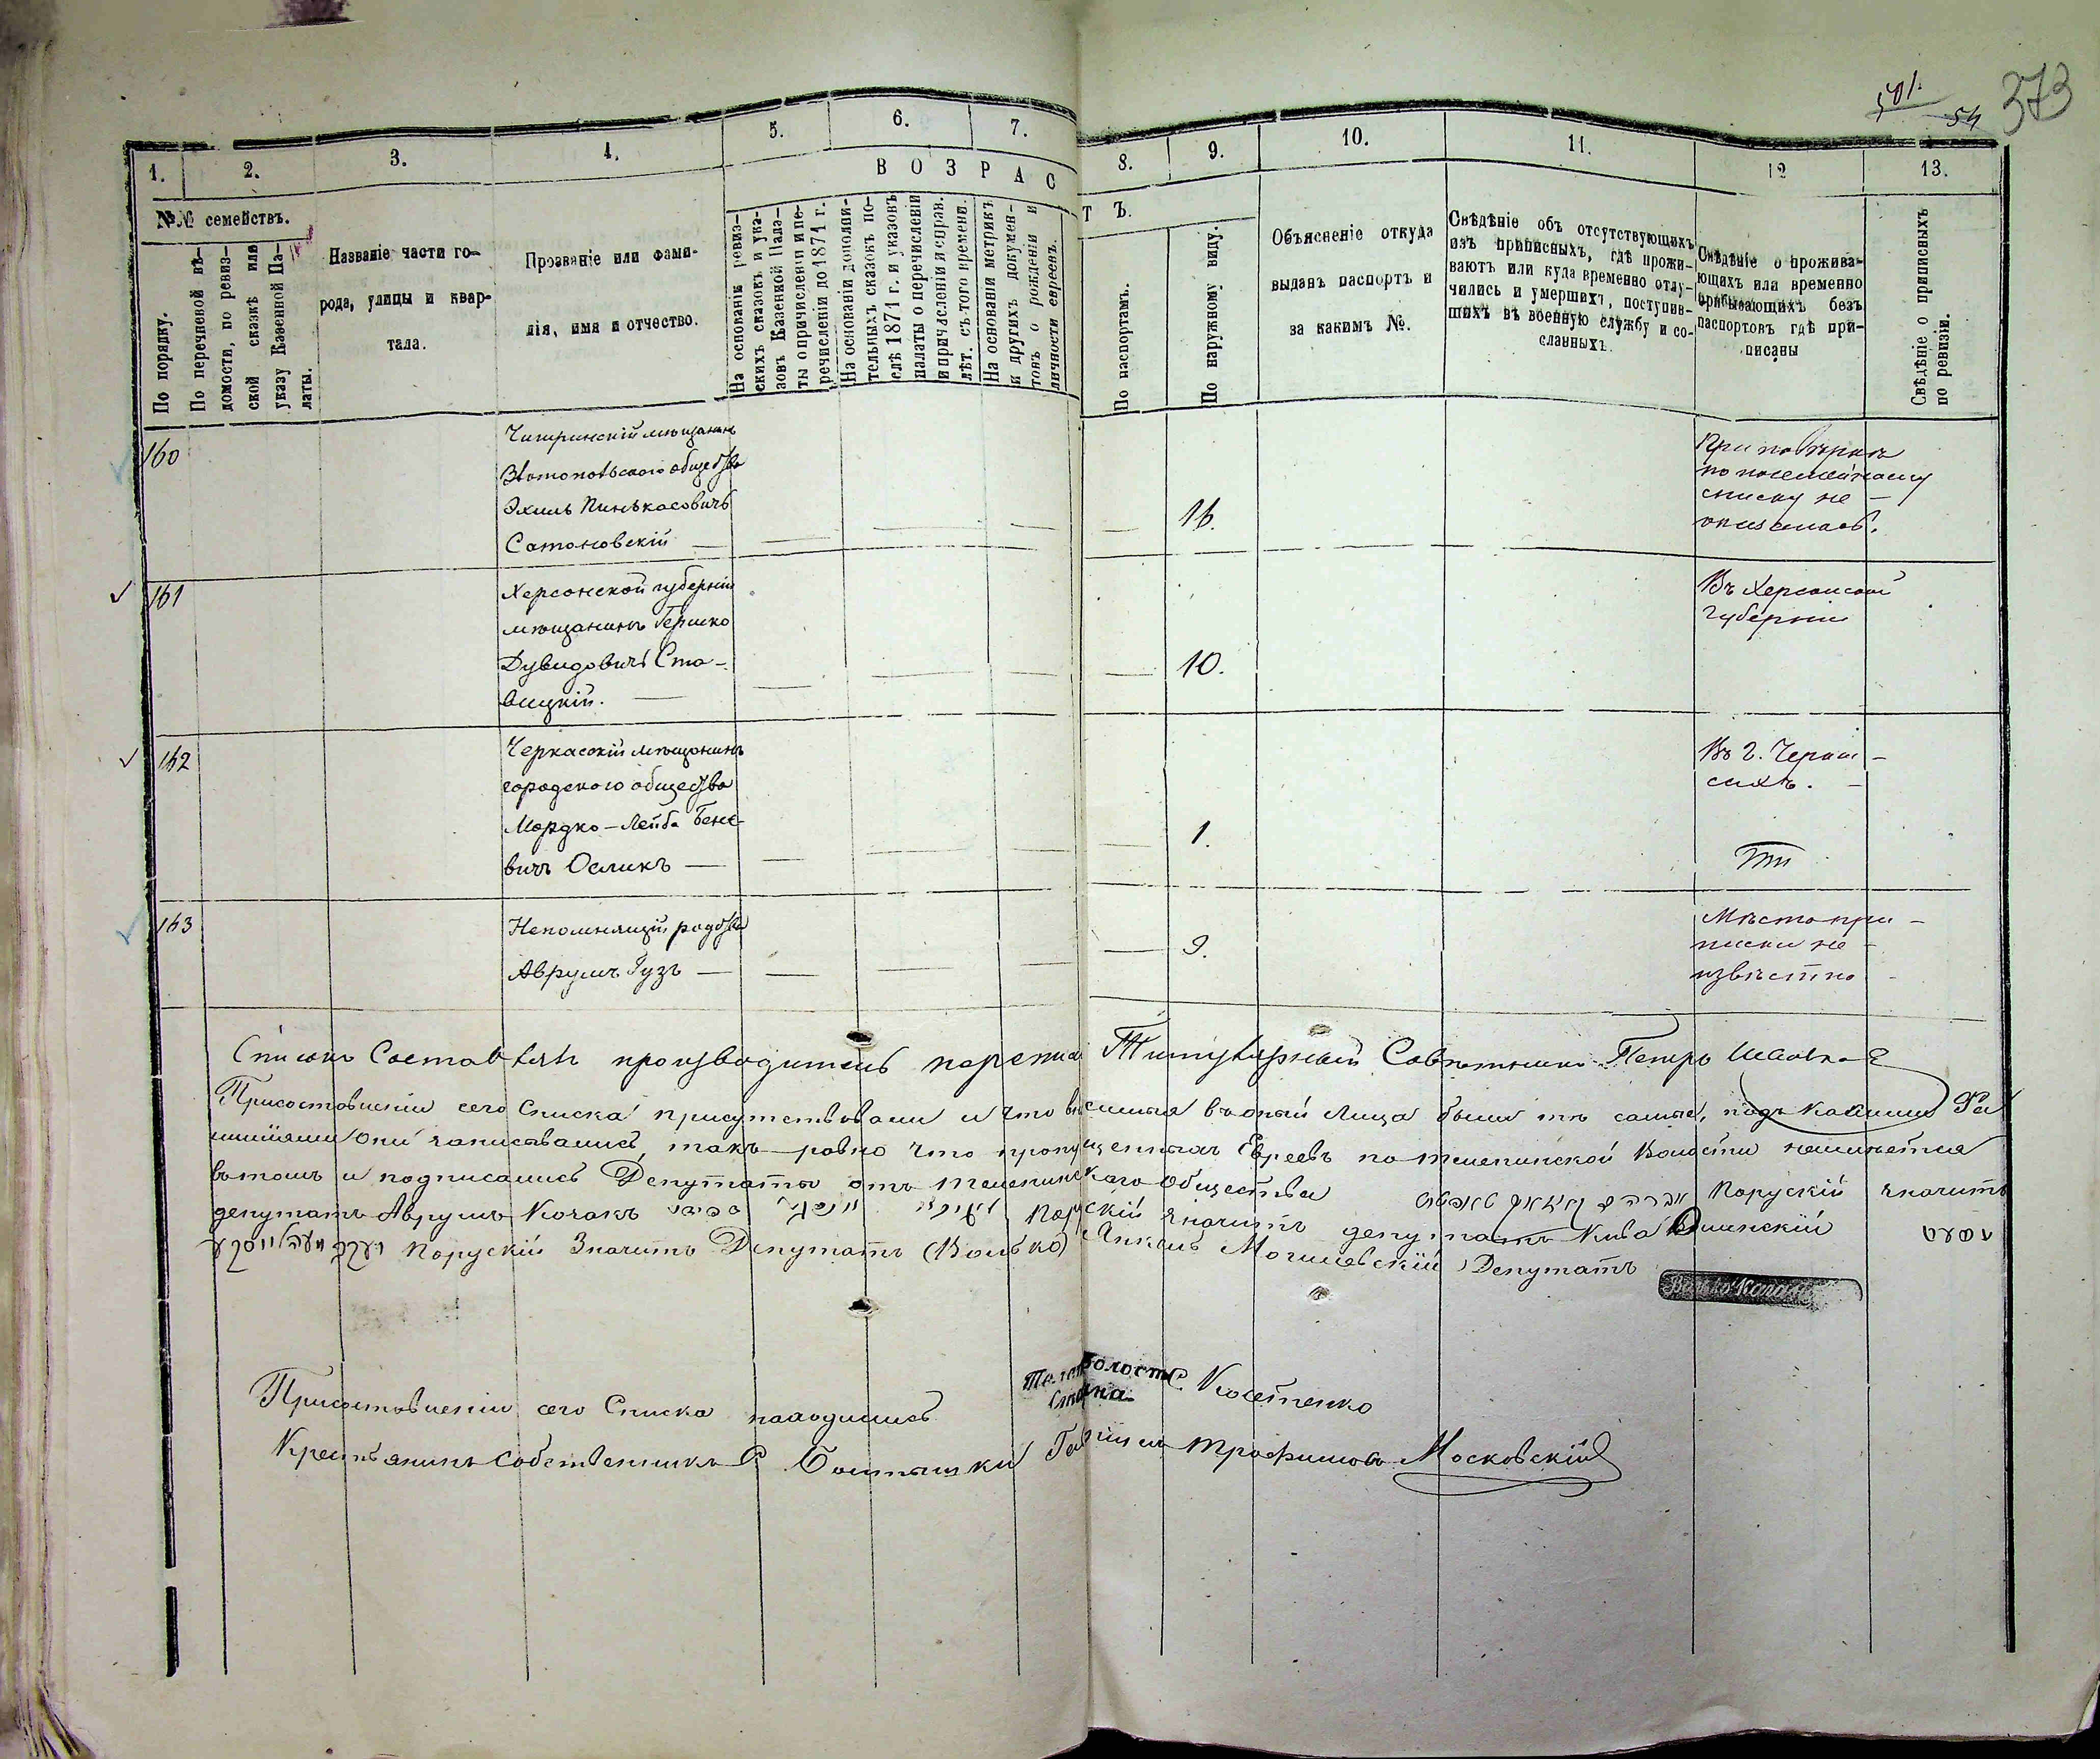 501.
54
373
1. 2. 3. 4. 5. 6. 7. 8. 9. 10. 11. 12 13.
ВОЗРАСТЪ.
№№ семействъ.
По порядку.
По перечневой вѣ-
домости, по ревиз-
ской сказкѣ или
указу Казенной Па-
латы.
Названіе части го-
рода, улицы и квар-
тала.
Прозваніе или фами-
лія, имя и отчество.
На основаніи ревиз-
скихъ сказокъ и ука-
зовъ Казенной Пала-
ты о причисленіи и пе-
речисленіи до 1871 г.
На основаніи дополни-
тельныхъ сказокъ по-
слѣ 1871 г. и указовъ
палаты о перечисленіи
и причисленіи и справ.
лѣт. съ того времени.
На основаніи метрикъ
и другихъ докумен-
товъ о рожденіи и
личности евреевъ.
По паспортамъ.
По наружному виду.
Объясненіе откуда
выданъ паспортъ и
за какимъ №.
Свѣдѣніе объ отсутствующихъ
изъ приписныхъ, гдѣ прожи-
ваютъ или куда временно отлу-
чились и умершихъ, поступив-
шихъ въ военную службу и со-
сланныхъ.
Свѣдѣніе о прожива-
ющихъ или временно
прибывающихъ безъ
паспортовъ гдѣ при-
писаны
Свѣдѣніе о приписныхъ
по ревизіи.
160
Чигиринскій мѣщанинъ
общества
Эхиль Пинькасовичъ
Сатановскій —
16.
При повѣркѣ
по посемейному
списку не —
оказалось.
161
Херсонской губерніи
мѣщанинъ Гершко
Дувидовичъ Ста-
вицкій. —
10.
Въ Херсонской
губерніи
162
Черкаскій мѣщанинъ
городского общества
Мордко-Лейба Бене-
вичъ Осликъ —
1.
Въ г. Черка-
сахъ. —
163
Непомнящій родства
Аврумъ Гузъ —
9.
Мѣсто при-
писки не -
извѣстно
Списокъ Составлялъ производитель переписи Титулярный Совѣтникъ Петръ
При составленіи сего Списка присутствовали и что внесенныя въ оный лица были тѣ самые, подъ какими Фа
миліями они записывались, такъ ровно что пропущенныхъ Евреевъ по Телепинской Волости неимѣется
вътомъ и подписались Депутаты отъ Телепинскаго Общества Порускій значитъ
депутатъ Аврумъ Кочакъ Порускій значитъ депутатъ Кива
Порускій Значитъ Депутатъ (Волько) Янкель Могилевскій Депутатъ
При составленіи сего Списка находились
Волост. Старшина С. Костенко
Крестьянинъ Собственникъ С. Трофимовъ Московскій